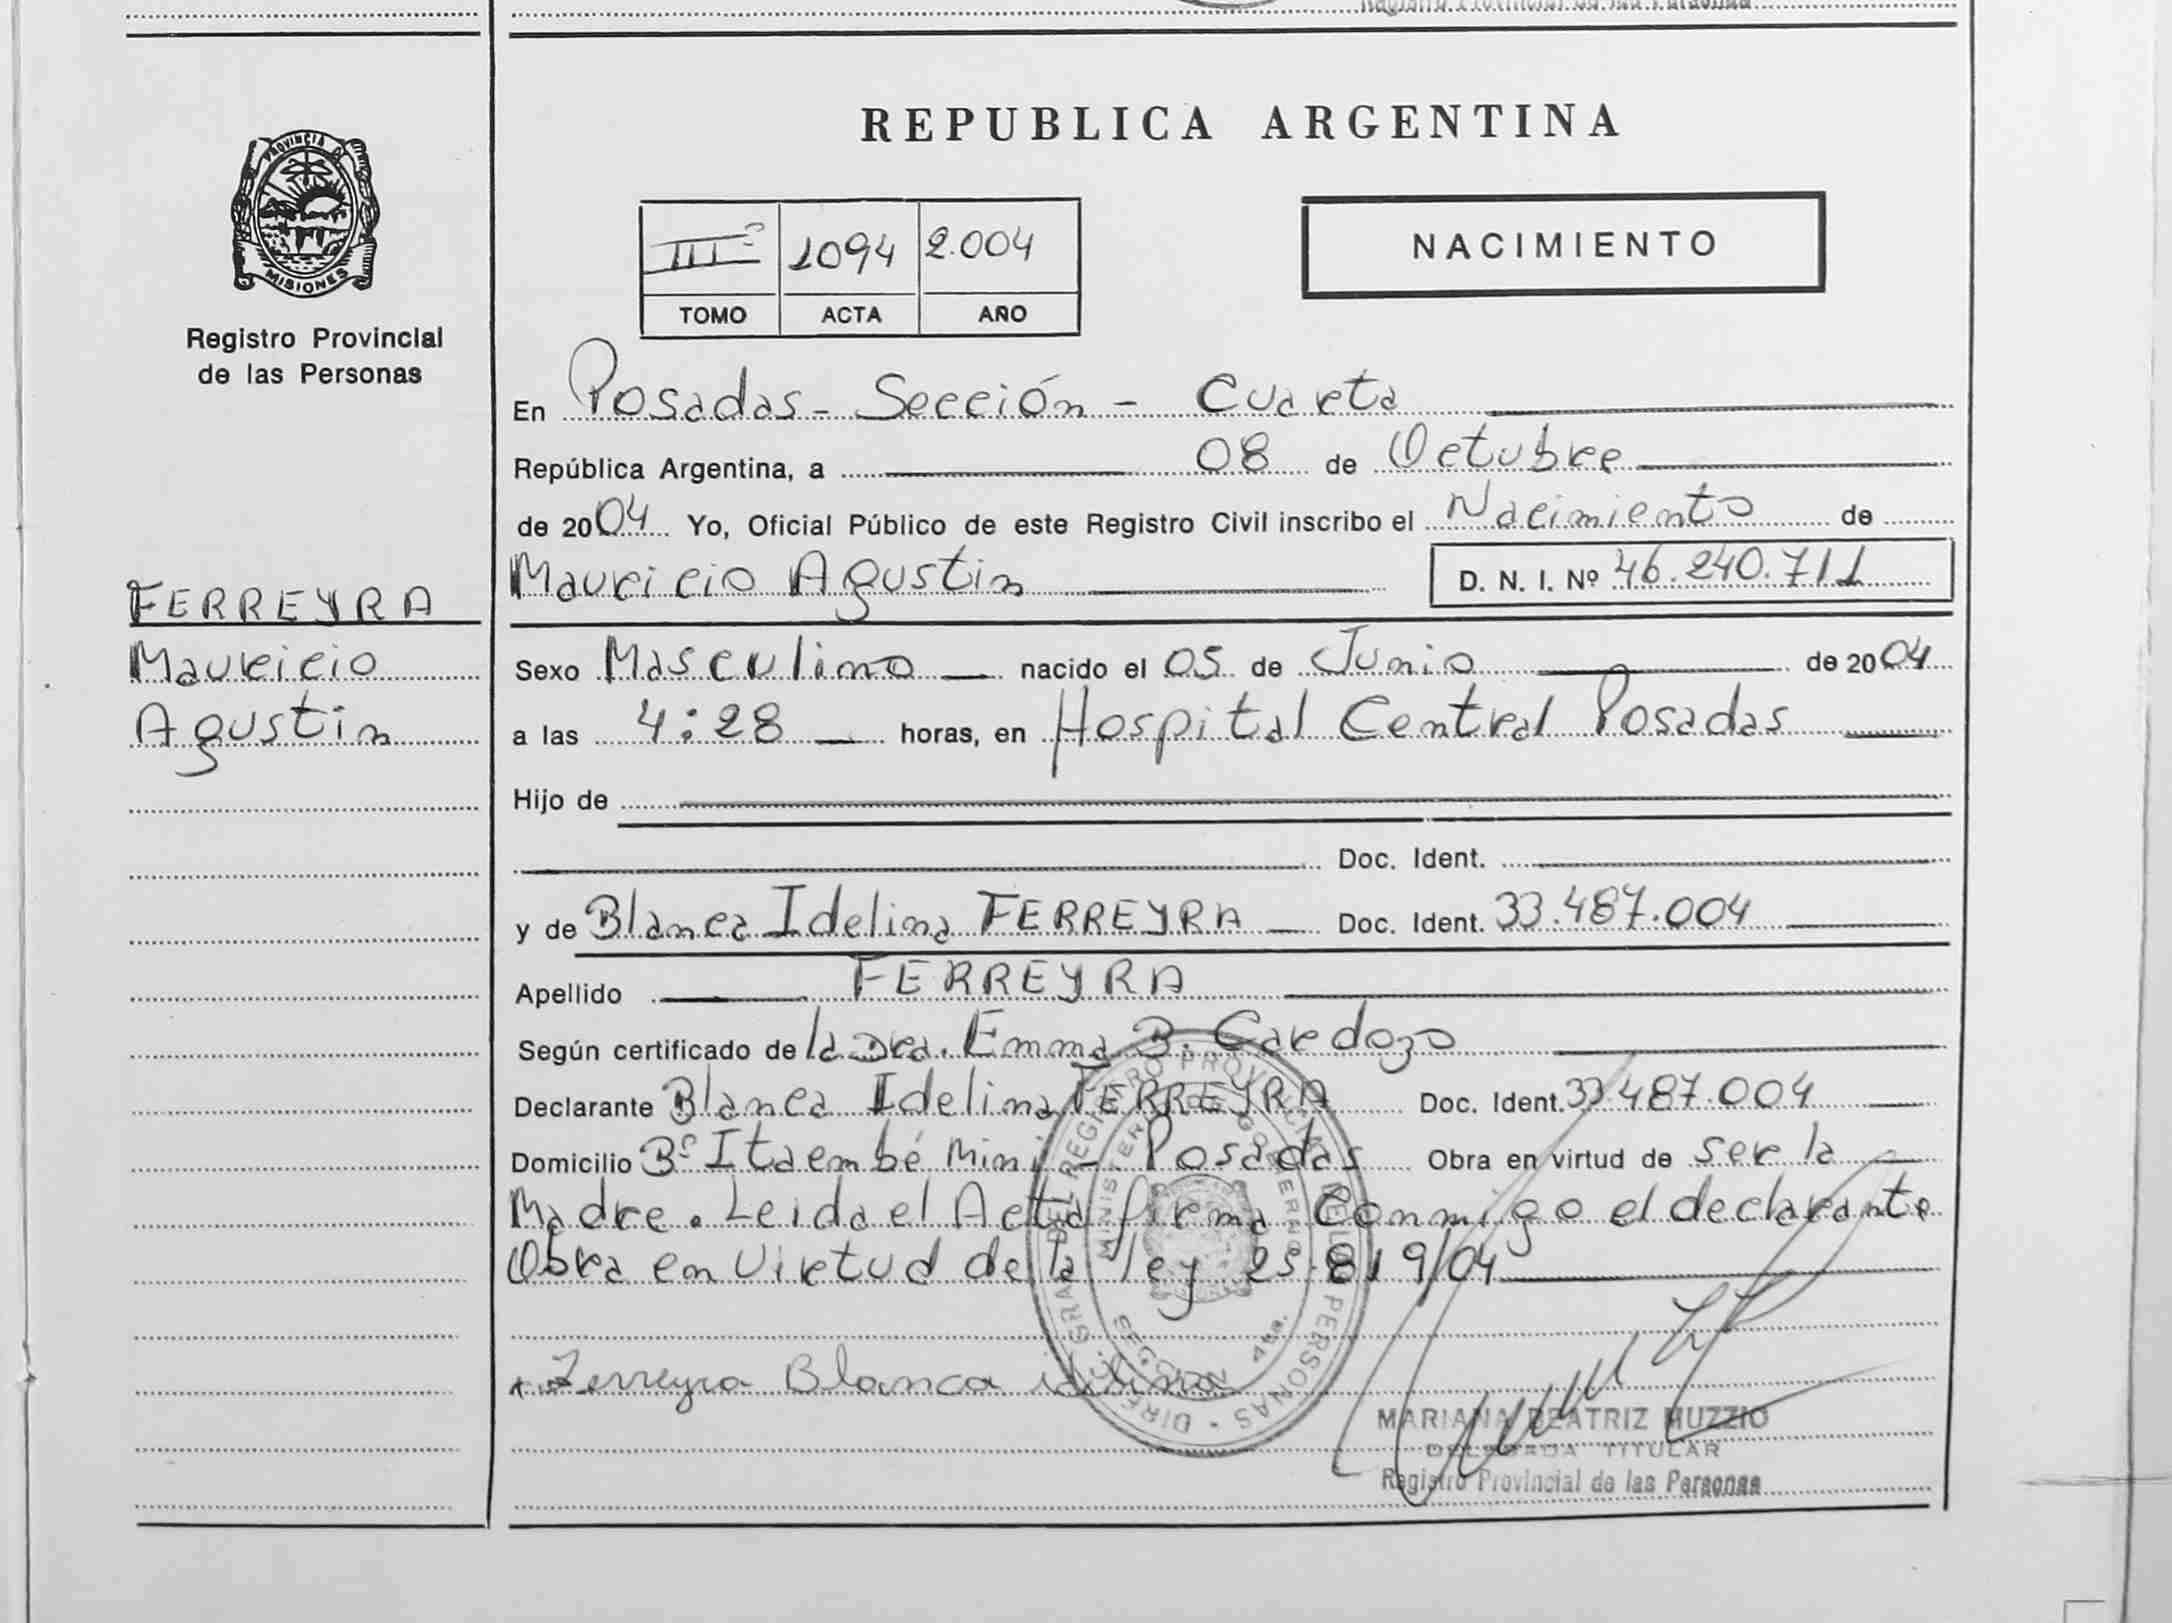 Registro Provincial de las Personas
PROVINCIA D
MISIONES
Registro Provincial
de las Personas
FERREYRA
Mauricio
Agustin
REPUBLICA ARGENTINA
III º 1094 2.004
TOMO ACTA AÑO
NACIMIENTO
En Posadas - Sección - Cuarta
República Argentina, a 08 de Octubre
de 2004 Yo, Oficial Público de este Registro Civil inscribo el Nacimiento de
Mauricio Agustin D. N. I. Nº 46.240.711
Sexo Masculino nacido el 05 de Junio de 2004
a las 4:28 horas, en Hospital Central Posadas
Hijo de
Doc. Ident.
y de Blanca Idelina FERREYRA Doc. Ident. 33.487.004
Apellido FERREYRA
Según certificado de la Dra. Emma B. Cardozo
Declarante Blanca Idelina FERREYRA Doc. Ident. 33.487.004
Domicilio Bº Itaembé Mini - Posadas Obra en virtud de ser la
Madre. Leida el Acta firma Conmigo el declarante
Obra en Virtud de la ley 25.819/04
Ferreyra Blanca idelina
MARIANA BEATRIZ MUZZIO
DELEGADA TITULAR
Registro Provincial de las Personas